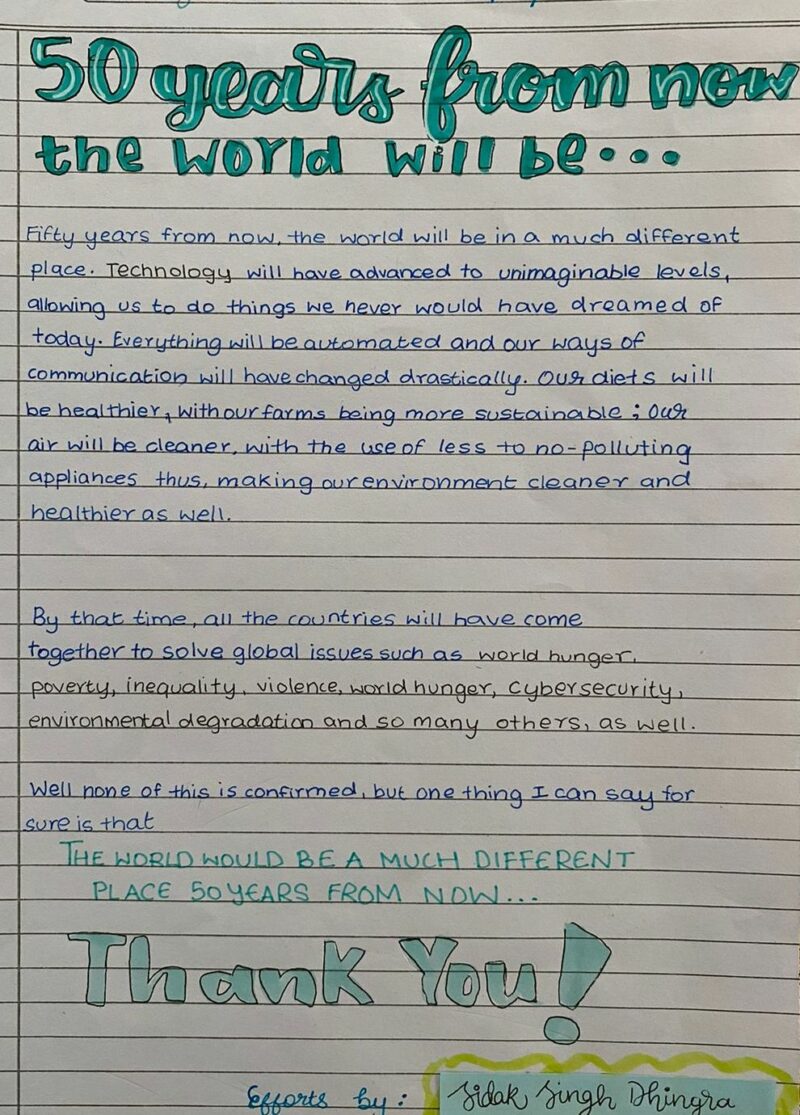 50 years from now
the world will be...
Fifty years from now, the world will be in a much different
place. Technology will have advanced to unimaginable levels,
allowing us to do things we never would have dreamed of
today. Everything will be automated and our ways of
communication will have changed drastically. Our diets will
be healthier, with our farms being more sustainable; our
air will be cleaner, with the use of less to no-polluting
appliances thus, making our environment cleaner and
healthier as well.
By that time, all the countries will have come
together to solve global issues such as world hunger,
poverty, inequality, violence, world hunger, cybersecurity,
environmental degradation and so many others, as well.
Well none of this is confirmed, but one thing I can say for
sure is that
THE WORLD WOULD BE A MUCH DIFFERENT
PLACE 50 YEARS FROM NOW...
Thank You!
Efforts by: Sidak Singh Dhingra